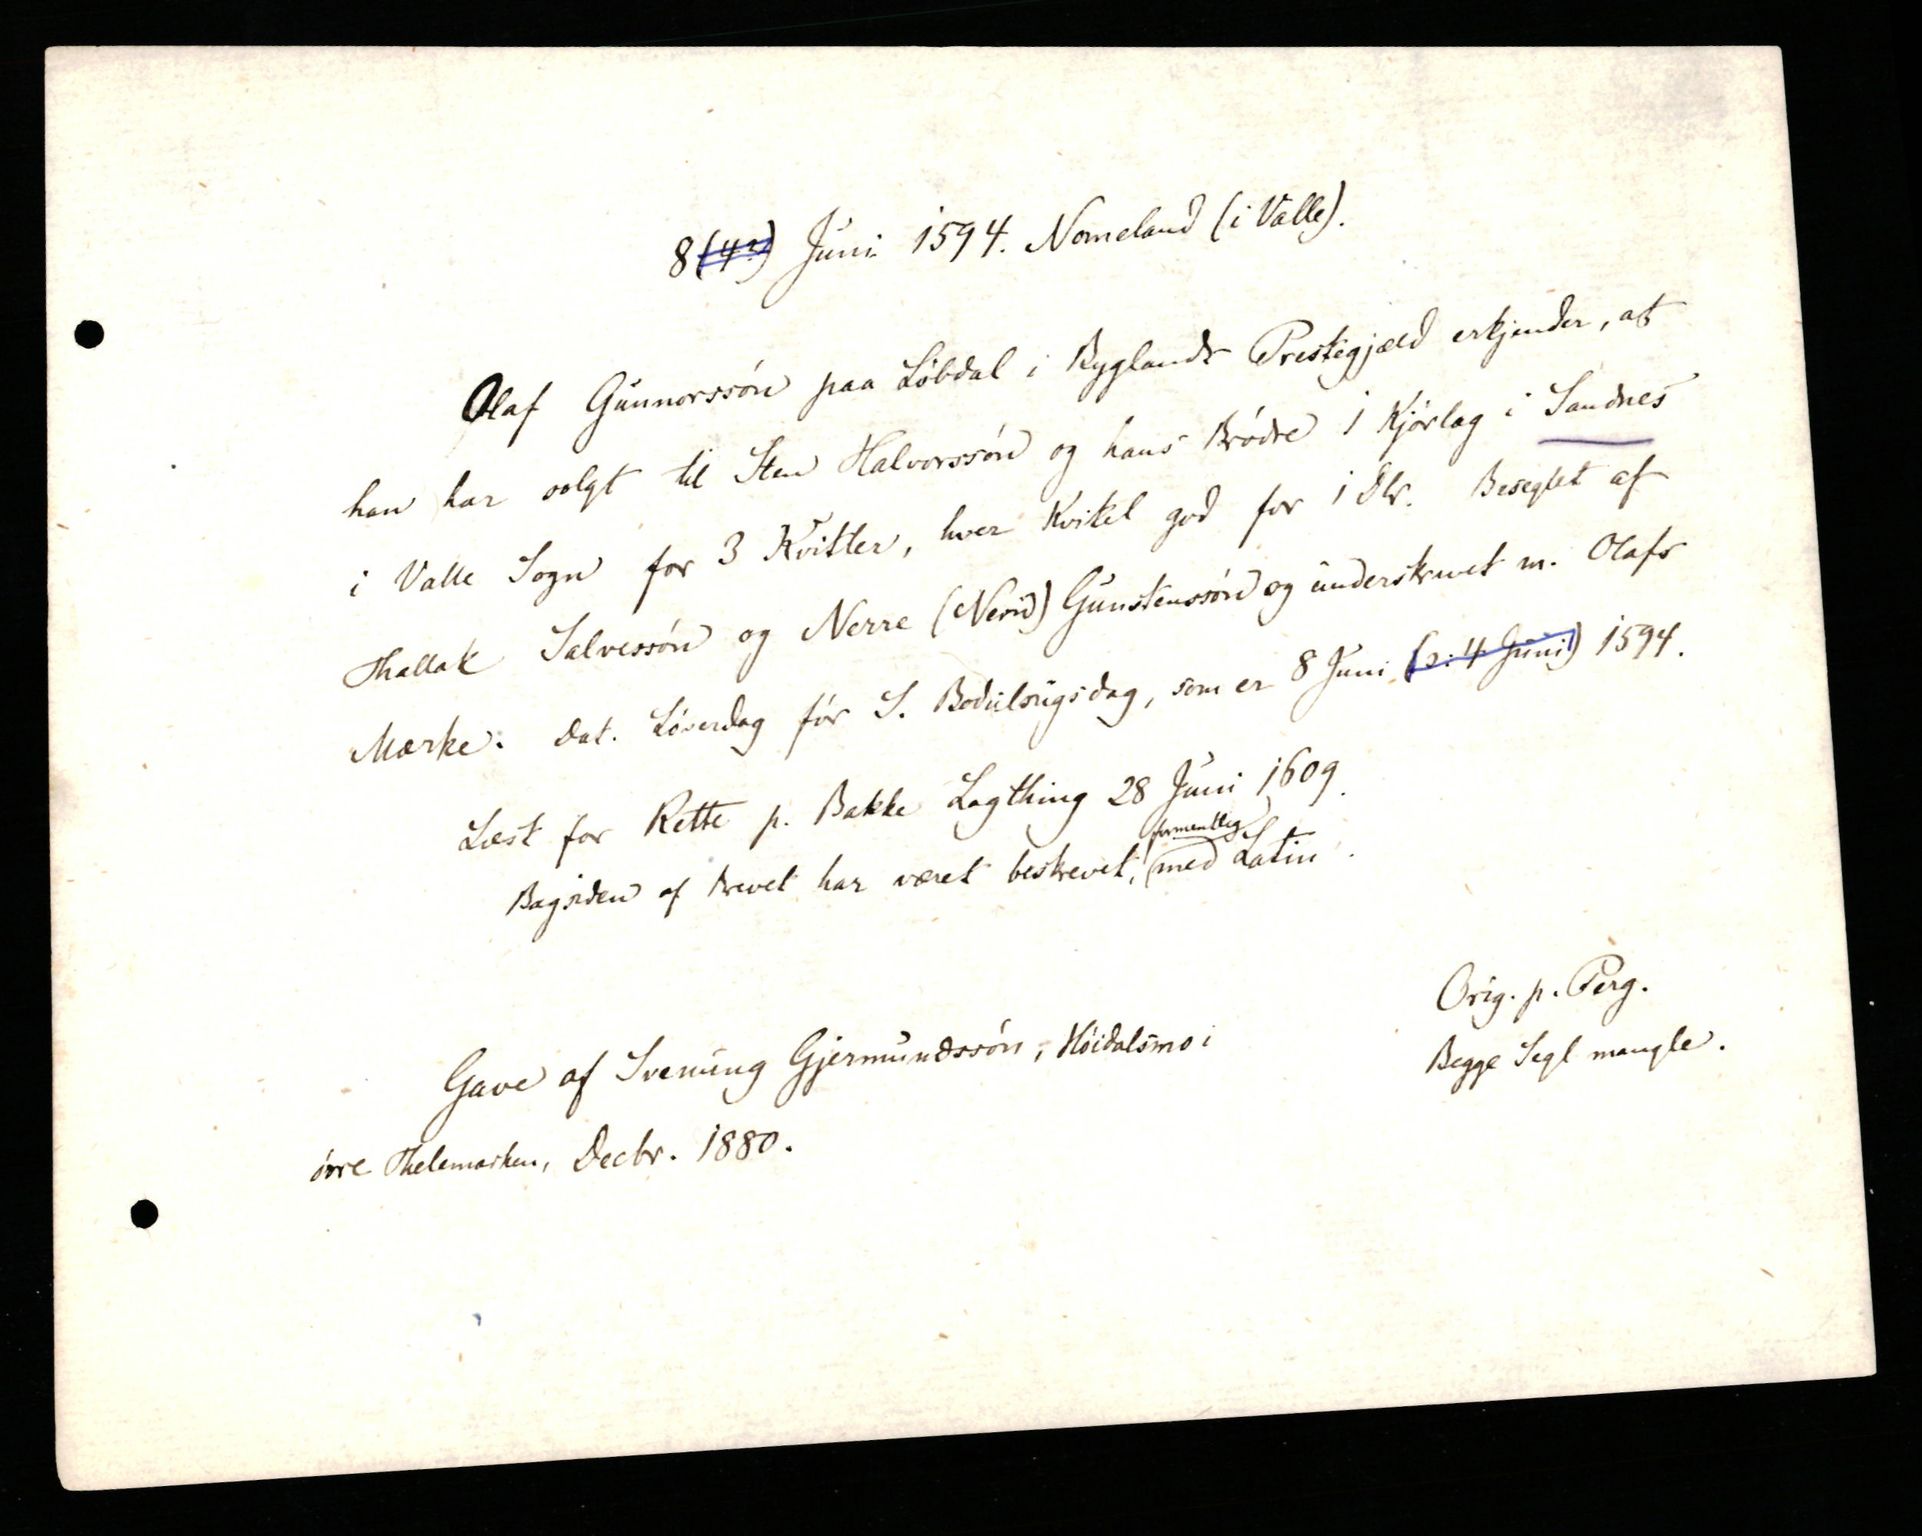 8 (4?) Juni 1594. Nomeland (i Valle).
Olaf Gunnorssön paa Löbdal i Byglands Prestegjæld erkjender, at
han har solgt til Sten Halvorssön og hans Brödre 1 Kjörlag i Sandnes
i Valle Sogn for 3 Kvitler, hver Kvitel god for 1 Dlr. Beseglet af
Thallak Salvessön og Nerre (Nerid) Gunstenssön og underskrevet m. Olafs
Mærke. Dat. Löverdag för S. Bodulsugsdag, som er 8 Juni (ɔ: 4 Juni) 1594.
Læst for Rette p. Bakke Lagthing 28 Juni 1609.
Bagsiden af Brevet har været beskrevet, (formentlig med Latin).
Orig. p. Perg.
Begge Segl mangle.
Gave af Svenung Gjermundssön, Höidalsmo i
övre Thelemarken, Decbr. 1880.